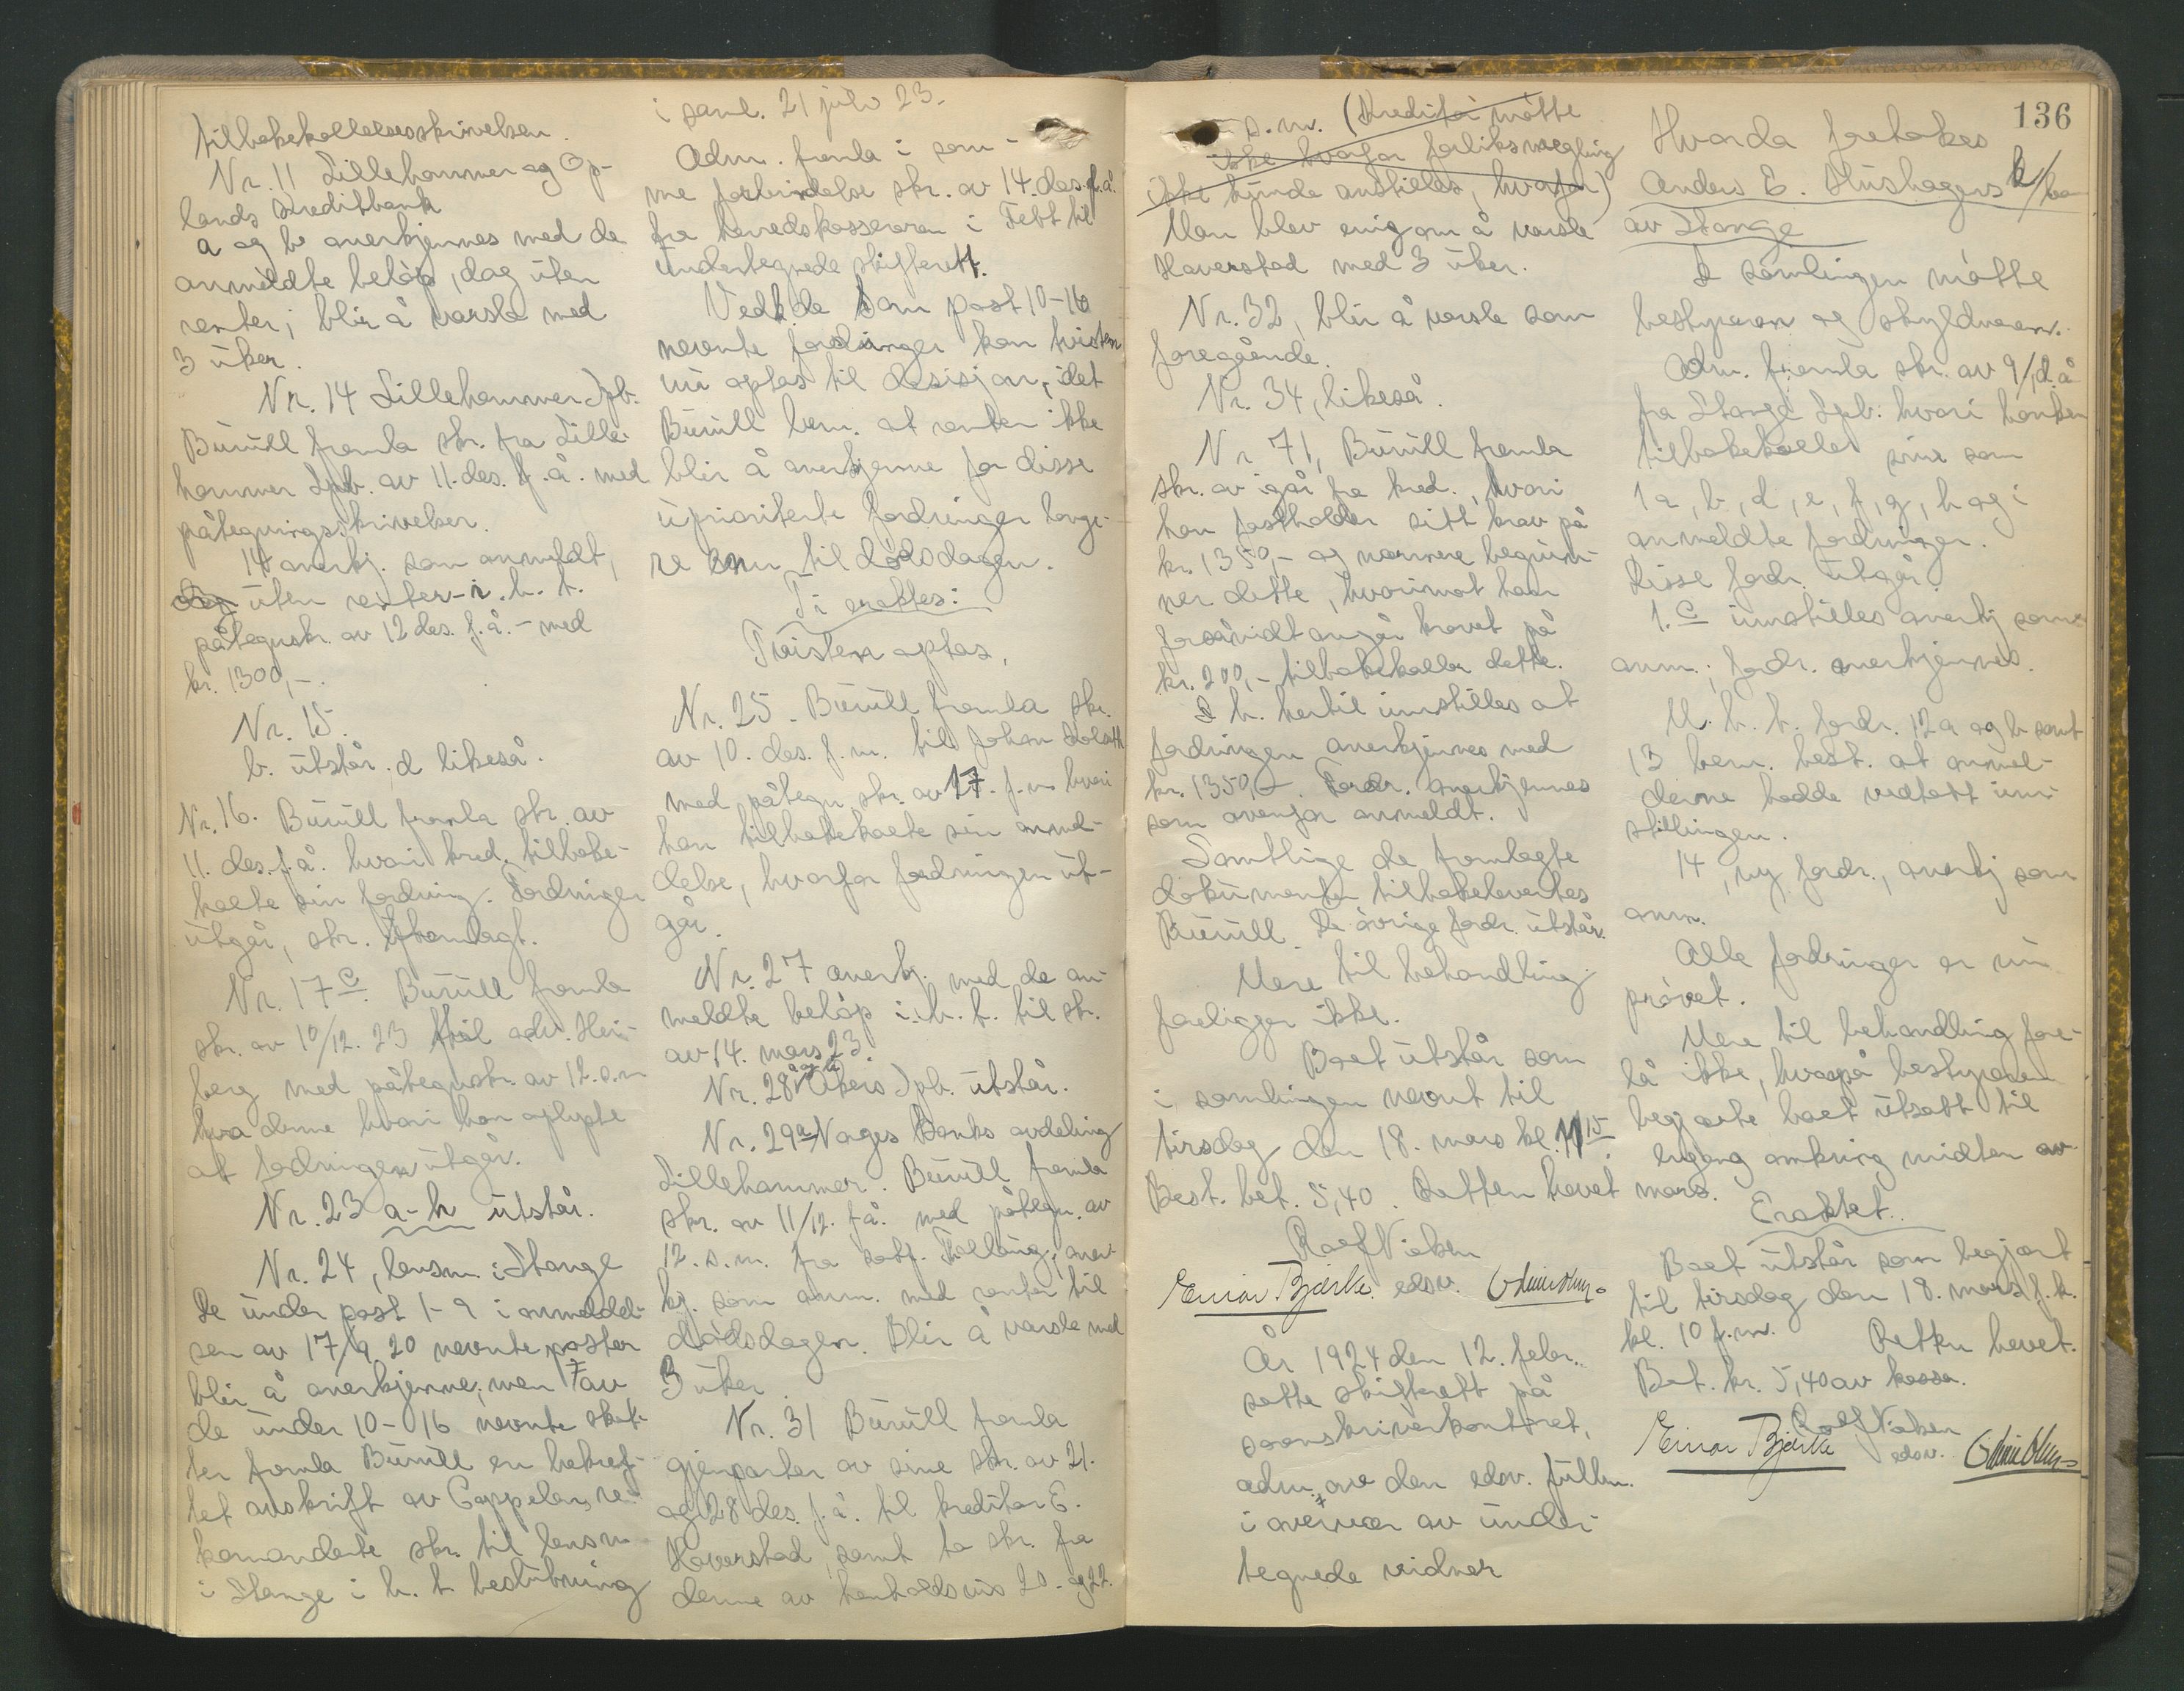 tilbakekallelsesskrivelsen.
Nr. 11 Lillehammer og Op-
lands Kreditbank
a og b anerkjennes med de
anmeldte beløp, dog uten
renter; blir å varsle med
3 uker.
Nr. 14 Lillehammer Spb.
Buüll fremla skr. fra Lille-
hammer Spb. av 11. des. f.å. med
påtegningsskrivelser.
14 anerkj. som anmeldt,
dog uten renter - i. h. t.
påtegnskr. av 12 des. f.å. - med
kr. 1300,-.
Nr. 15.
b. utstår. d likeså.
Nr. 16. Buüll fremla skr. av
11. des. f.å. hvori kred. tilbake-
kalte sin fordring. Fordringen
utgår, skr. fremlagt.
Nr. 17 c. Buüll fremla
skr. av 10/12. 23 til adv. Hei-
berg med påtegnskr. av 12. s.m.
fra denne hvori han oplyste
at fordringen utgår.
Nr. 23 a-h utstår.
Nr. 24, lensm. i Stange
De under post 1-9 i anmeldel-
sen av 17/9 20 nevnte poster
blir å anerkjenne; men av
de under 10-16 nevnte skat-
ter fremla Buüll en bekref-
tet avskrift av Cappelens re-
komanderte skr. til lensm
i Stange i h. t. beslutning
i saml. 21 juli 23.
Adm. fremla i sam-
me forbindelse skr. av 14. des. f.å.
fra herredskassereren i Fett til
undertegnede skifterett.
Vedk. de som post 10-16
nevnte fordringer kan tvisten
nu optas til desisjon, idet
Buüll bem. at renter ikke
blir å anerkjenne for disse
uprioriterte fordringer lenge-
re enn til dødsdagen.
Ti eraktes:
Tvisten optas.
Nr. 25. Buüll fremla skr.
av 10. des. f.m. til Johan
med påtegn. skr. av 17. f.m. hvori
han tilbakekalte sin anmel-
delse, hvorfor fordringen ut-
går.
Nr. 27 anerkj. med de an-
meldte beløp i. h. t. til skr.
av 14. mars 23.
Nr. 28 a og b Akers Spb. utstår.
Nr. 29 a Norges Banks avdeling
Lillehammer. Buüll fremla
skr. av 11/12. f.å. med påtegn. av
12. s.m. fra saf. aner-
kj. som anm. med renter til
dødsdagen. Blir å varsle med
3 uker.
Nr. 31 Buüll fremla
gjenparter av sine skr. av 21.
og 28 des. f.å. til kreditor E.
Haverstad, samt to skr. fra
denne av henholdsvis 20. og 22.
s.m. (Kreditor møtte
ikke hvorfor forliksmegling
ikke kunde anstilles, hvorfor)
Man blev enig om å varsle
Haverstad med 3 uker.
Nr. 32, blir å varsle som
foregående.
Nr. 34, likeså.
Nr 71, Buüll fremla
skr. av igår fra kred., hvori
han fastholder sitt krav på
kr. 1350,- og nærmere begrun-
ner dette, hvorimot han
forsåvidt angår kravet på
kr. 200,- tilbakekaller dette.
I h. hertil innstilles at
fordringen anerkjennes med
kr. 1350,-. Fordr. anerkjennes
som ovenfor anmeldt.
Samtlige de fremlagte
dokumenter tilbakelevertes
Buüll. De øvrige fordr. utstår.
Mere til behandling
foreligger ikke.
Boet utstår som
i samlingen nevnt til
tirsdag den 18. mars kl. 11 15.
Best. bet. 5,40. Retten hevet
Rolf Nielsen
Einar Bjærke. edsv.
År 1924 den 12. febr.
sattes skifterett på
sorenskriverkontoret,
adm. av den edsv. fullm.
i overvær av under-
tegnede vidner
136
Hvorda foretokes
Anders E. Hushagens k/bo
av Stange
I samlingen møtte
bestyreren og skyldneren.
Adm. fremla skr. av 9/1 d.å
fra Stange Spb. hvori banken
tilbakekaller sine som
1a, b, d, e, f, g, h og i
anmeldte fordringer.
Disse fordr. utgår.
1. c innstilles anerkj som
anm.; fordr. anerkjennes.
M. h. t. fordr. 12a og b samt
13 bem. best. at anmel-
derne hadde vedtatt inn-
stillingen.
14, ny fordr., anerkj som
anm.
Alle fordringer er nu
prøvet.
Mere til behandling fore-
lå ikke, hvorpå bestyreren
begjærte boet utsatt til
engang omkring midten av
mars.
Eraktet.
Boet utstår som begjært
til tirsdag den 18. mars f.k.
kl. 10 f.m. Retten hevet.
Bet. kr. 5,40 av kassa.
Rolf Nielsen
Einar Bjærke edsv.